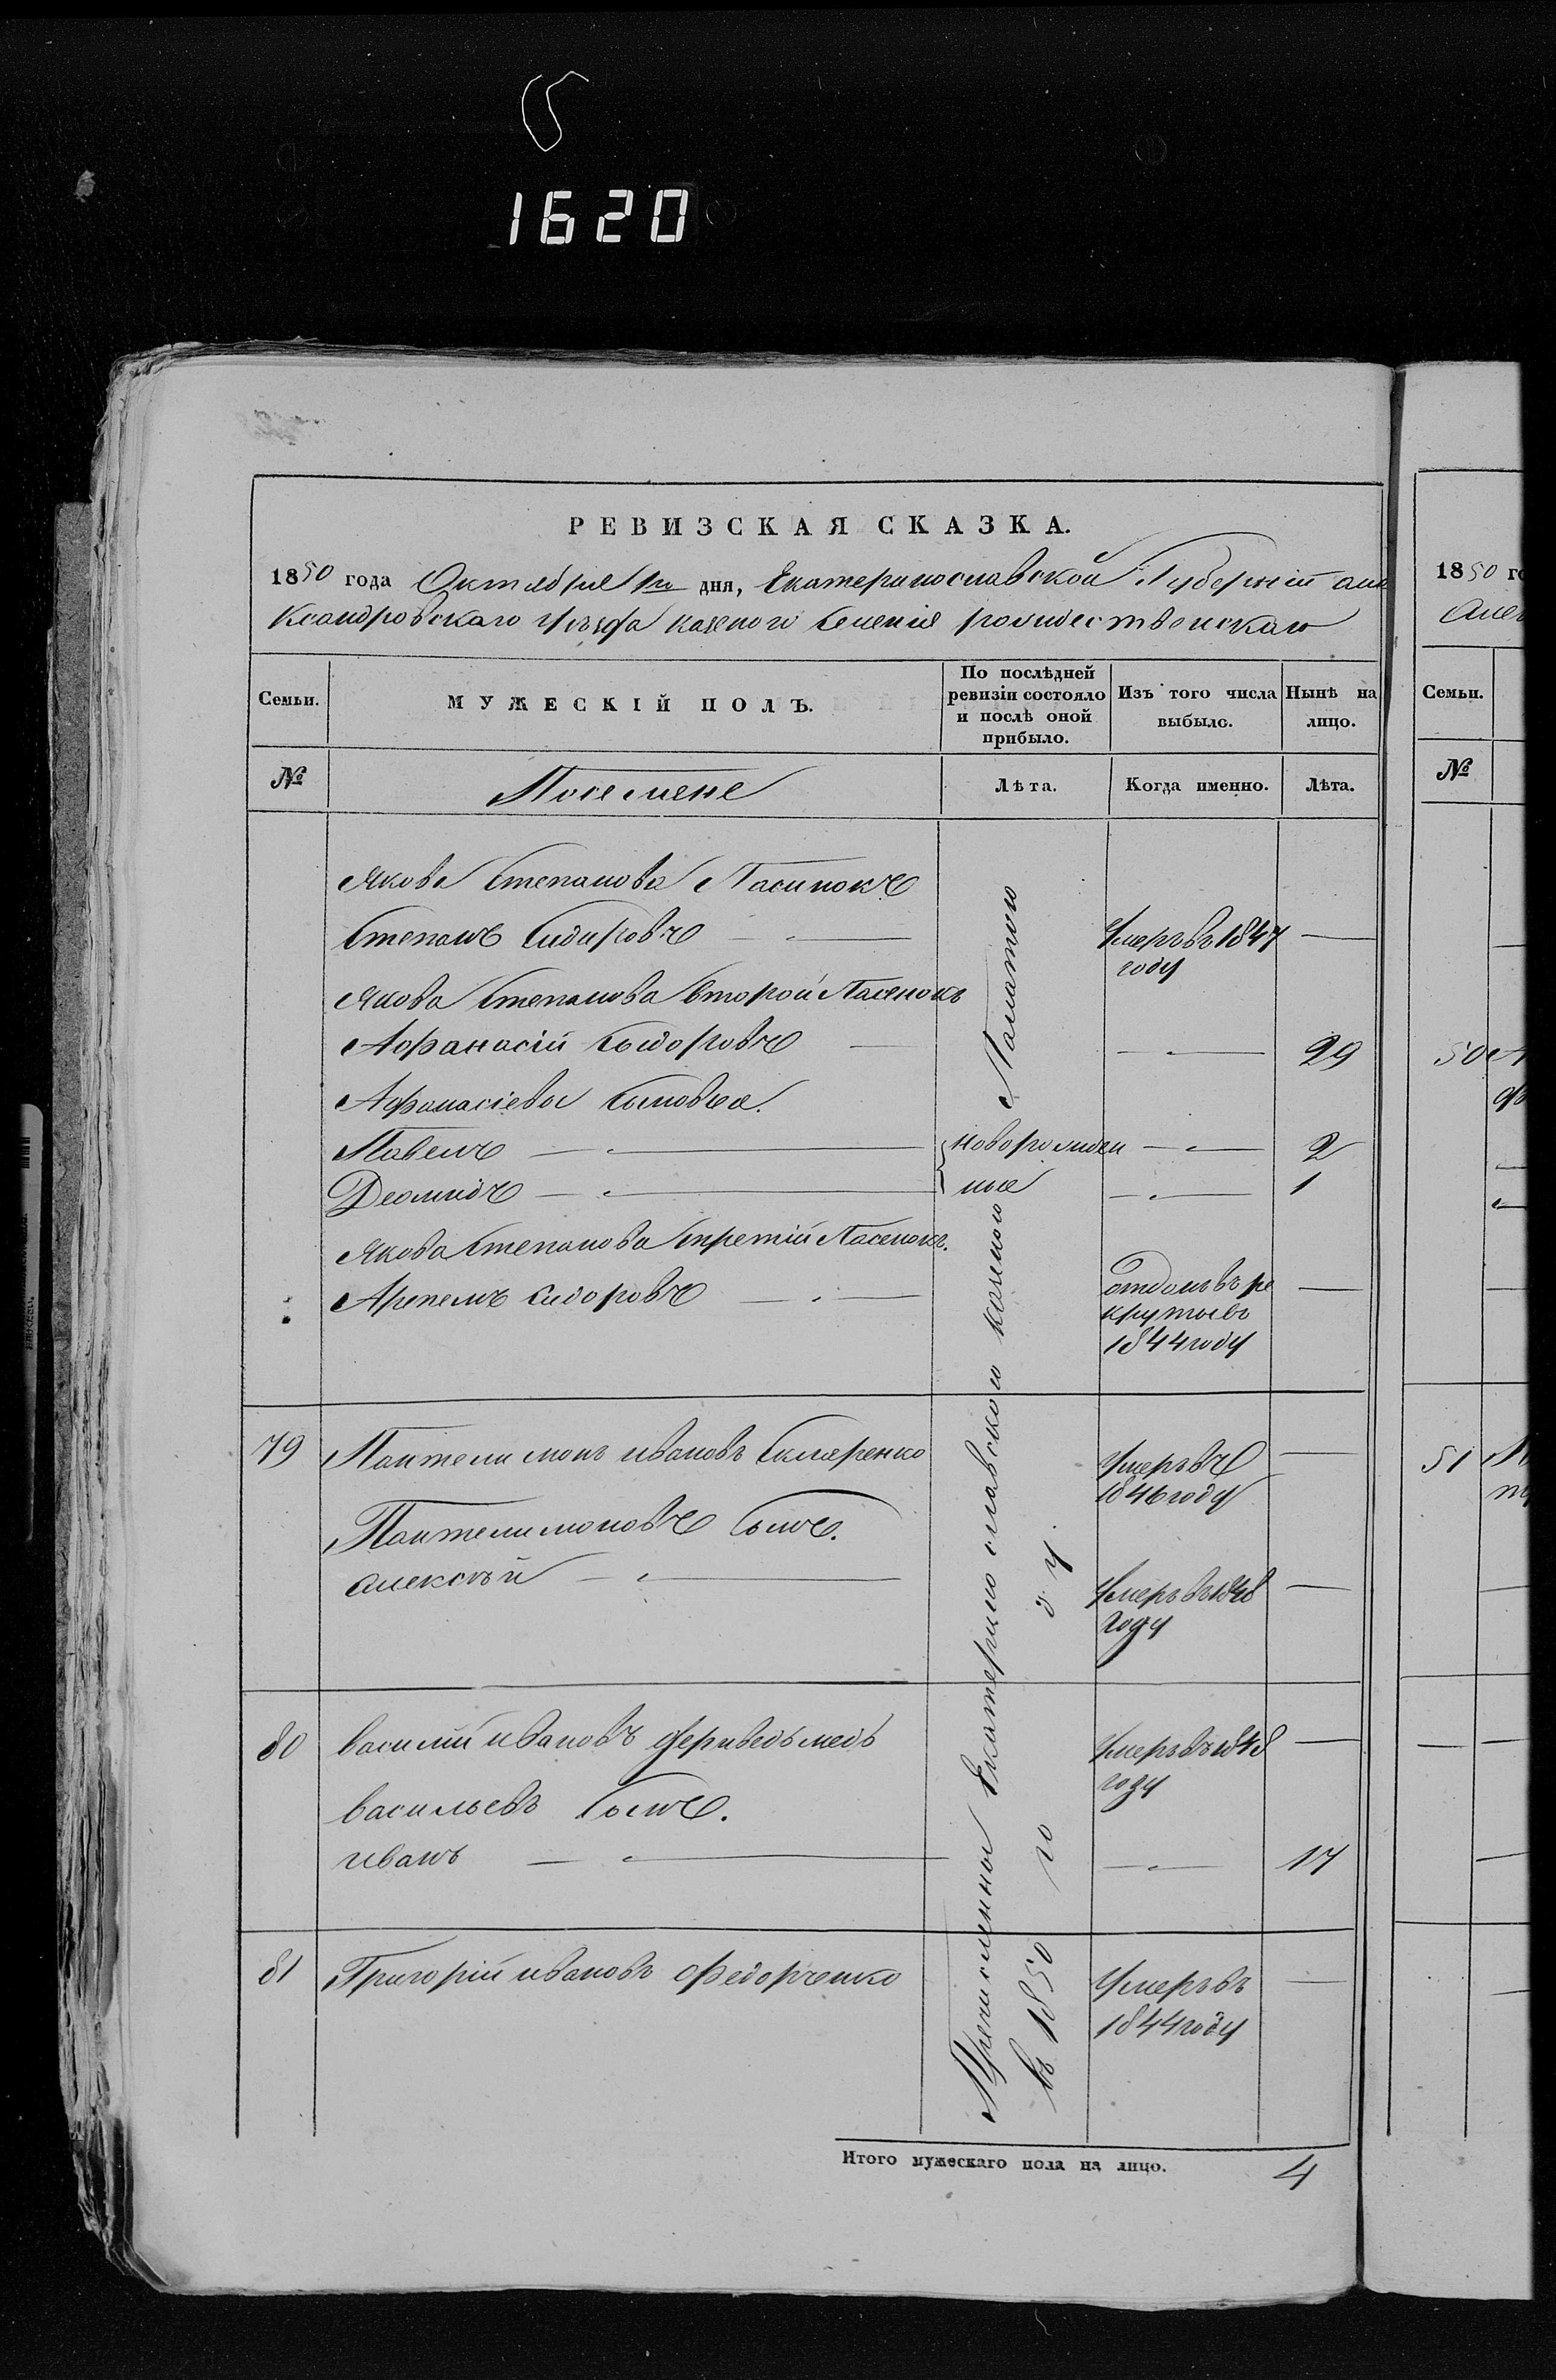 1620
РЕВИЗСКАЯ СКАЗКА.
1850 года Октября 1го дня, Екатеринославской Губерніи але
ксандровскаго уѣзда казеного Селенія рождественскаго
Семьи.
МУЖЕСКІЙ ПОЛЪ.
По послѣдней ревизіи состояло и послѣ оной прибыло.
Изъ того числа выбыло.
Нынѣ на лицо.
№
Лѣта.
Когда именно.
Лѣта.
Якова Степанова Пасинокъ
Степанъ Сидоровъ — умеръ въ 1847 —
году
Якова Степанова второй Пасенокъ
Афанасій Сыдоровъ — — 29
Афанасіева Сыновья.
Павелъ — новорожден — 2
Деомидъ — ные — 1
Якова Степанова третій Пасенокъ.
Артемъ Сидоровъ — отданъ въ ре —
круты въ
1844 году
79 Пантелимонъ ивановъ Скляренко умеръ въ —
1846 году
Пантелимоновъ Сынъ.
алексѣй — умеръ въ 1848 —
году
80 василій ивановъ умеръ въ 1848 —
году
васильевъ Сынъ.
иванъ — — 17
81 Григорій ивановъ Федорченко умеръ въ —
1844 году
Причисленные Екатеринославского казеного
въ 1850 го
ду
Итого мужескаго пола на лицо. 4
1850 го
Алек
Семьи.
№
50 А
51